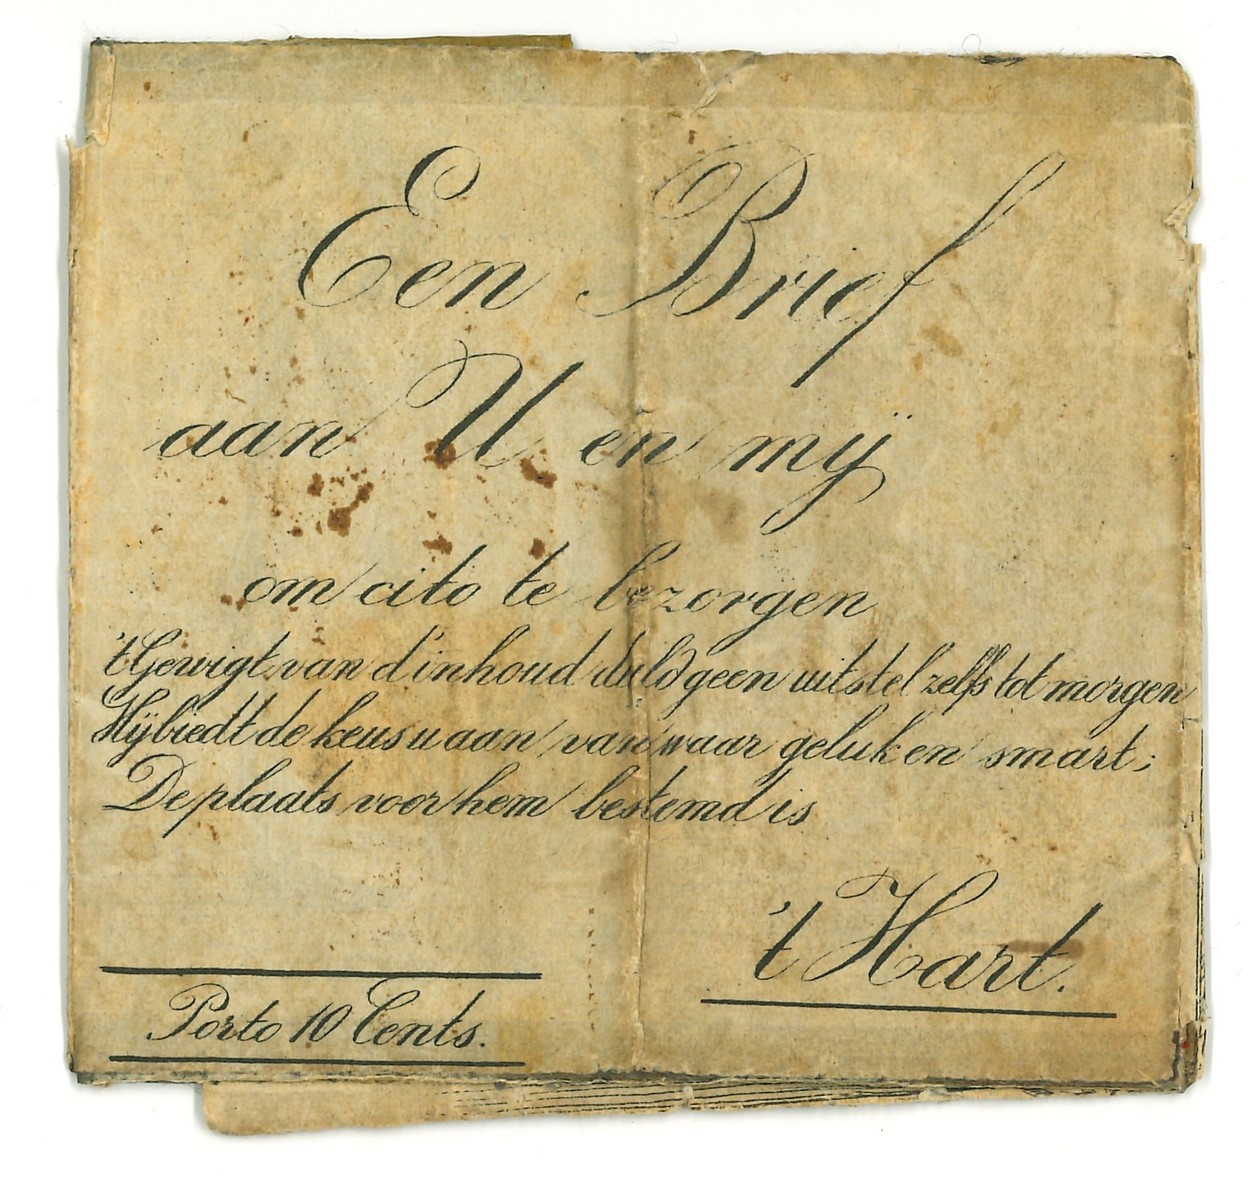 Een Brief
aan U en mij
om cito te bezorgen
't Gewigt van d'inhoud duld geen uitstel zelfs tot morgen
Hij biedt de keus u aan van waar geluk en smart;
De plaats voor hem bestemd is
't Hart.
Porto 10 Cents.